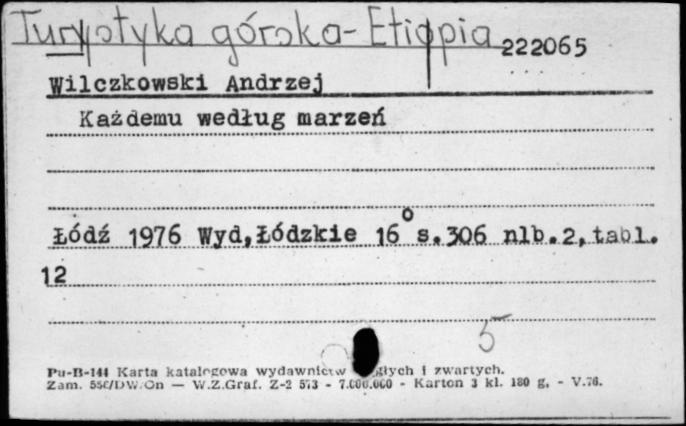 Turystyka górska - Etiopia 222065
Wilczkowski Andrzej
Każdemu według marzeń
Łódź 1976 Wyd, Łódzkie 16° s. 306 nlb. 2, tabl.
12
5
Pu-B-144 Karta katalogowa wydawnictw ciągłych i zwartych.
Zam. 556/DW/On — W.Z.Graf. Z-2 573 - 7.000.000 - Karton 3 kl. 180 g. - V.76.